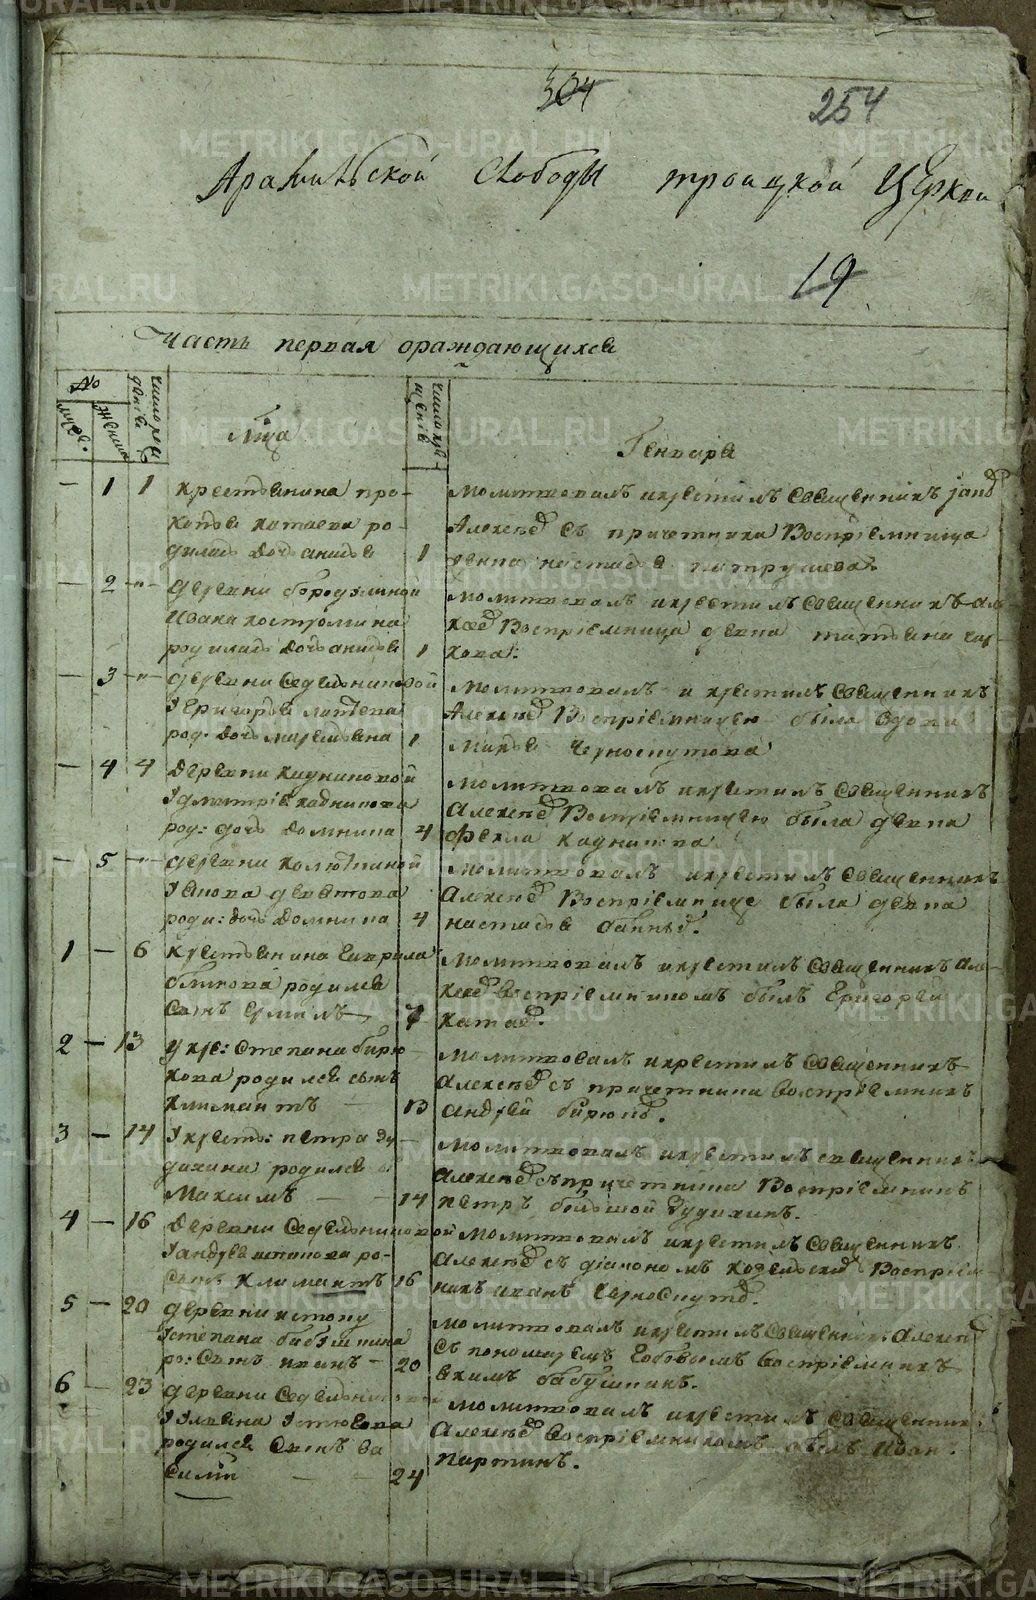 304
254
Арамильской Слободы троицкой Церкви
19
Часть первая ораждающихся
№
мужес.
женска
число рожденiя
Лица
число крещенiя
Генваря
— 1 1 крестьянина про-
копья катаева ро-
дилась дочь анисья 1
молитвовалъ икрестилъ священникъ
Алексей съ причетника Восприемница
девица настасья патрушева.
— 2 -"- деревни бородулиной
Ивана костромина
родилась дочь анисья 1
молитвовалъ икрестилъ священникъ але-
ксей Восприемница девка татьяна
кова:
— 3 -"- деревни седельниковой
Григорья
род. дочь 1
молитвовалъ и крестилъ священникъ
Алексей Восприемницею была вдова
марья черноскутова
— 4 4 деревни кадниковой
дмитрiя кадникова
род: дочь домнина 4
молитвовалъ икрестилъ священникъ
Алексей Восприемницею была девка
фекла кадникова
— 5 -"- деревни колюткиной
девятова
роди: дочь домнина 4
молитвовалъ икрестилъ священникъ
Алексей Восприемнице была девка
настасья
1 — 6 крестьянина гаврила
блинова родился
сынъ ермилъ 7
молитвовалъ икрестилъ священникъ але-
ксей восприемникомъ былъ Григорей
катае.
2 — 13 укре: степана бирю-
кова родился сынъ
климантъ — 13
молитвовалъ икрестилъ священникъ
Алексей съ причетники восприемникъ
андрей бирюко.
3 — 14 укресть: петра ду-
дихина родился с:
Максимъ — — 14
молитвовалъ икрестилъ священникъ
Алексей съпричетника Восприемникъ
петръ большой дудихинъ.
4 — 16 деревни седельниковой
уандрея шпанова ро-
сынъ климантъ 16
молитвовалъ икрестилъ священникъ
Алексей съ дiакономъ Восприем-
никъ иванъ черноскуто.
5 — 20 деревни истоку
устепана бабушкина
ро: сынъ иванъ — 20
молитвовалъ икрестилъ священникъ Алексей
съ пономаремъ восприемникъ
екимъ бабушкинъ.
6 — 23 деревни седельниковой
родился сынъ ва
силiй — — 24
молитвовалъ икрестилъ священникъ
Алексей восприемникомъ былъ иван
партинъ.
METRIKI.GASO-URAL.RU